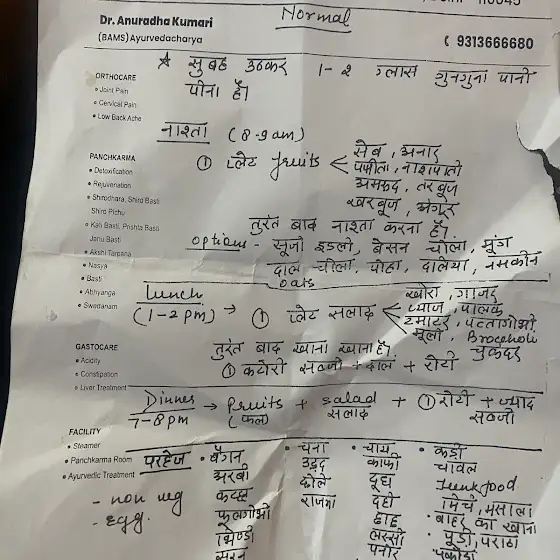 110045
Normal
Dr. Anuradha Kumari
(BAMS) Ayurvedacharya
9313666680
★ सुबह उठकर 1-2 ग्लास गुनगुना पानी
पीना है।
ORTHOCARE
• Joint Pain
• Cervical Pain
• Low Back Ache
नाश्ता (8-9am)
① प्लेट fruits < सेब, अनार
पपीता, नाशपाती
अमरूद, तरबूज
खरबूज, अंगूर
PANCHKARMA
• Detoxification
• Rejuvenation
• Shirodhara, Shiro Basti
Shiro Pichu
• Kati Basti, Prishta Basti
Janu Basti
• Akshi Tarpana
• Nasya
• Basti
• Abhyanga
• Swedanam
तुरंत बाद नाश्ता करना है।
options - सूजी इडली, बेसन चीला, मूंग
दाल चीला, पोहा, दलिया, नमकीन
oats
Lunch
(1-2pm) → ① प्लेट सलाद < खीरा, गाजर
प्याज, पालक
टमाटर, पत्तागोभी
मूली, Brocehole
चुकंदर
तुरंत बाद खाना खाना है।
① कटोरी सब्जी + दाल + रोटी
GASTOCARE
• Acidity
• Constipation
• Liver Treatment
Dinner
7-8pm → fruits + salad + ① रोटी + ज्याद
(फल) सलाद सब्जी
FACILITY
• Steamer
• Panchkarma Room
• Ayurvedic Treatment
परहेज
- non veg
- egg.
• बैंगन
अरबी
कद्दू
फूलगोभी
भिण्डी
• चना
उड़द
छोले
राजमा
• चाय
काफी
दूध
दही
छाछ
लस्सी
पनीर
• कढ़ी
चावल
Junkfood
मिर्च, मसाला
• बाहर का खाना
• पूड़ी, पराठा
पकौड़ा